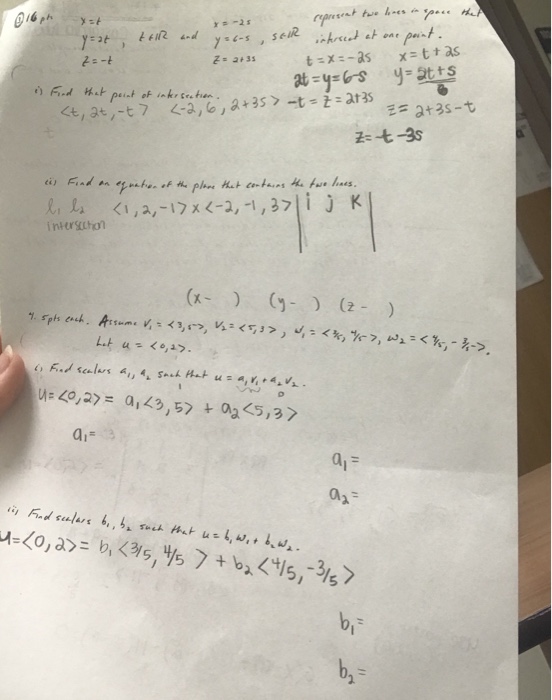 16 pts x=t x=-2s represent two lines in space that
y=2t, t∈ℝ and y=6-s, s∈ℝ intersect at one point.
z=-t z=2+3s t=x=-2s x=t+2s
2t=y=6-s y=2t+s
6
i) Find that point of intersection. -t=z=2+3s z=2+3s-t
<t,2t,-t> <-2,6,2+3s>
z=-t-3s
ii) Find an equation of the plane that contains the two lines.
l₁ l₂ <1,2,-1>x<-2,-1,3> | i j k |
intersection
(x- ) (y- ) (z- )
4. 5pts each. Assume v₁=<3,5>, v₂=<5,3>, w₁=<3/5, 4/5>, w₂=<4/5, -3/5>.
Let u=<0,2>.
i) Find scalars a₁, a₂ such that u=a₁v₁+a₂v₂.
u=<0,2>= a₁<3,5> + a₂<5,3>
a₁=
a₁=
a₂=
ii) Find scalars b₁, b₂ such that u=b₁w₁+b₂w₂.
u=<0,2>= b₁<3/5, 4/5> + b₂<4/5, -3/5>
b₁=
b₂=